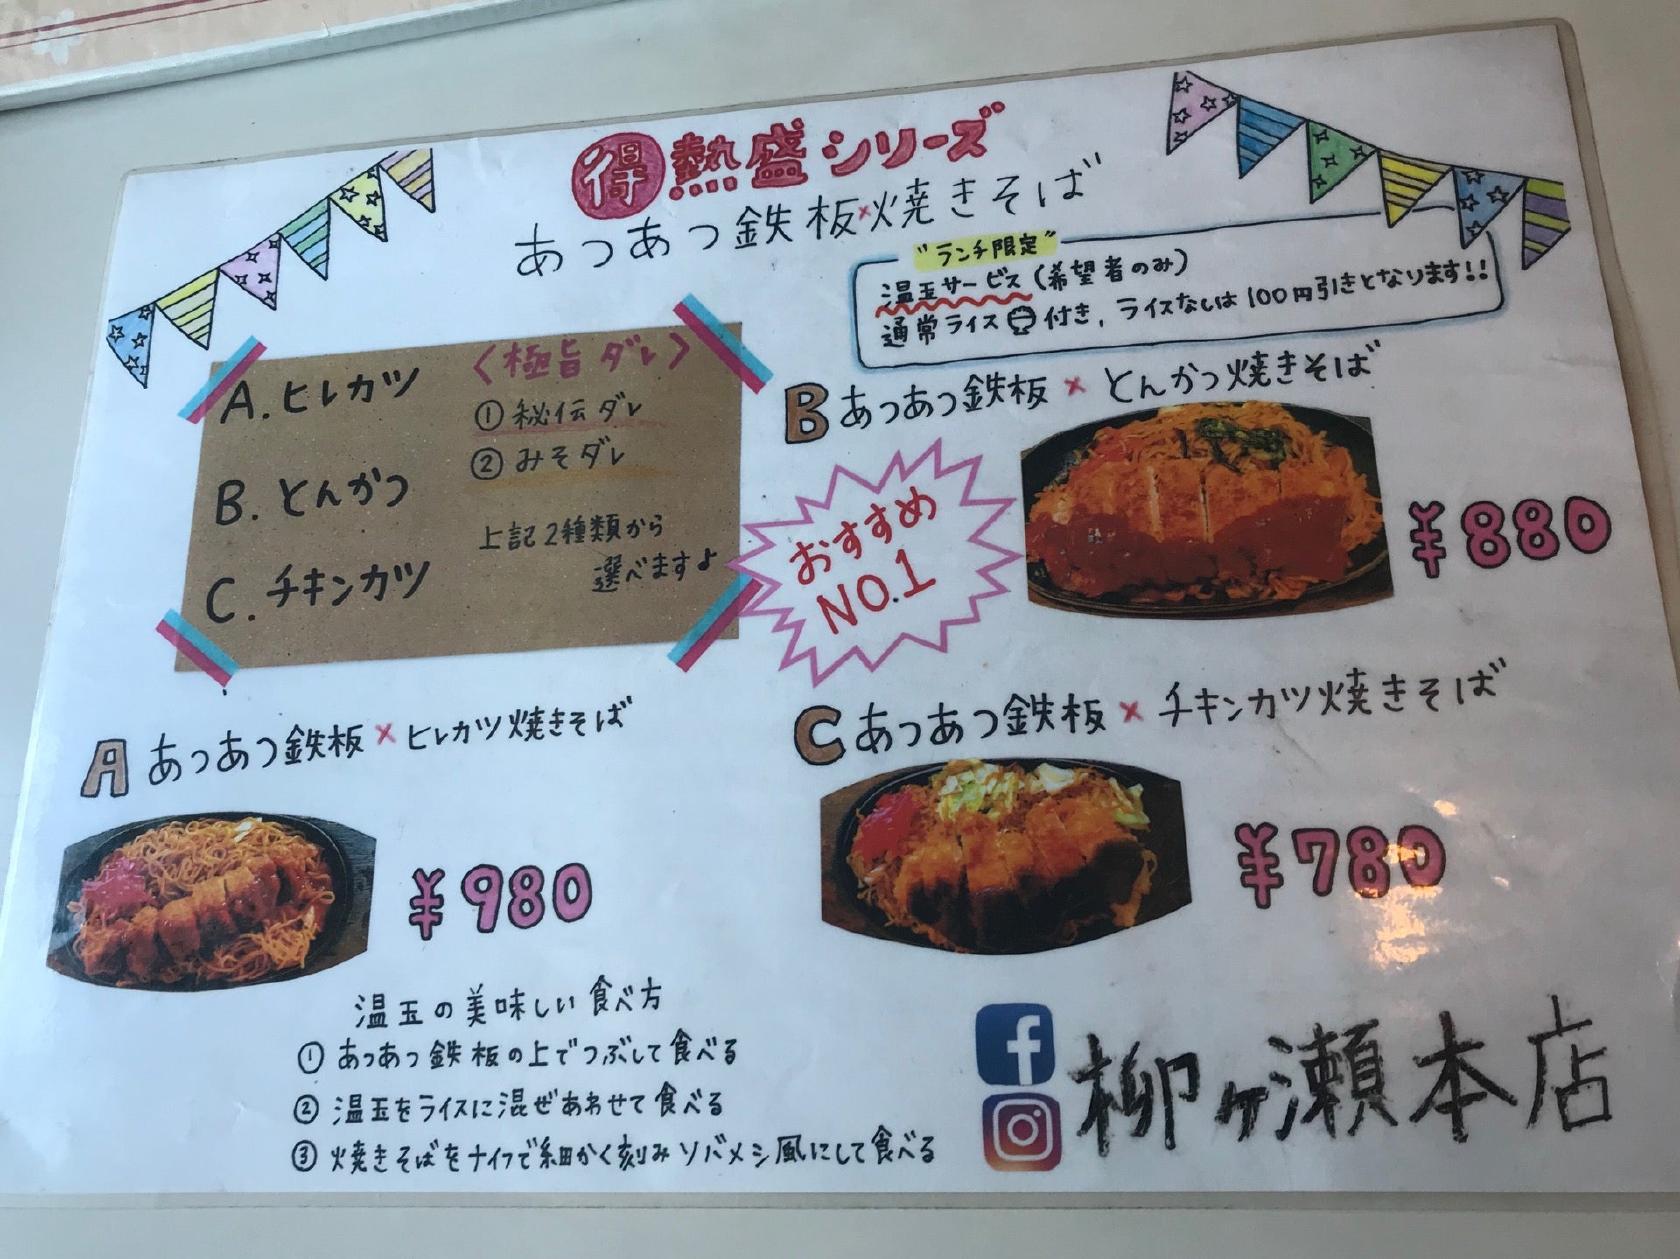 得 熱盛シリーズ
あつあつ鉄板×焼きそば
"ランチ限定"
温玉サービス(希望者のみ)
通常ライス付き、ライスなしは100円引きとなります!!
A.ヒレカツ
B.とんかつ
C.チキンカツ
〈極旨ダレ〉
①秘伝ダレ
②みそダレ
上記2種類から
選べますよ
おすすめ
NO.1
B あつあつ鉄板×とんかつ焼きそば
¥880
A あつあつ鉄板×ヒレカツ焼きそば
¥980
C あつあつ鉄板×チキンカツ焼きそば
¥780
温玉の美味しい食べ方
①あつあつ鉄板の上でつぶして食べる
②温玉をライスに混ぜあわせて食べる
③焼きそばをナイフで細かく刻みソバメシ風にして食べる
柳ヶ瀬本店